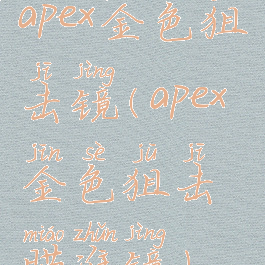 apex金色狙
jī jìng
击镜(apex
jīn sè jū jī
金色狙击
miáo zhǔn jìng
瞄准镜)